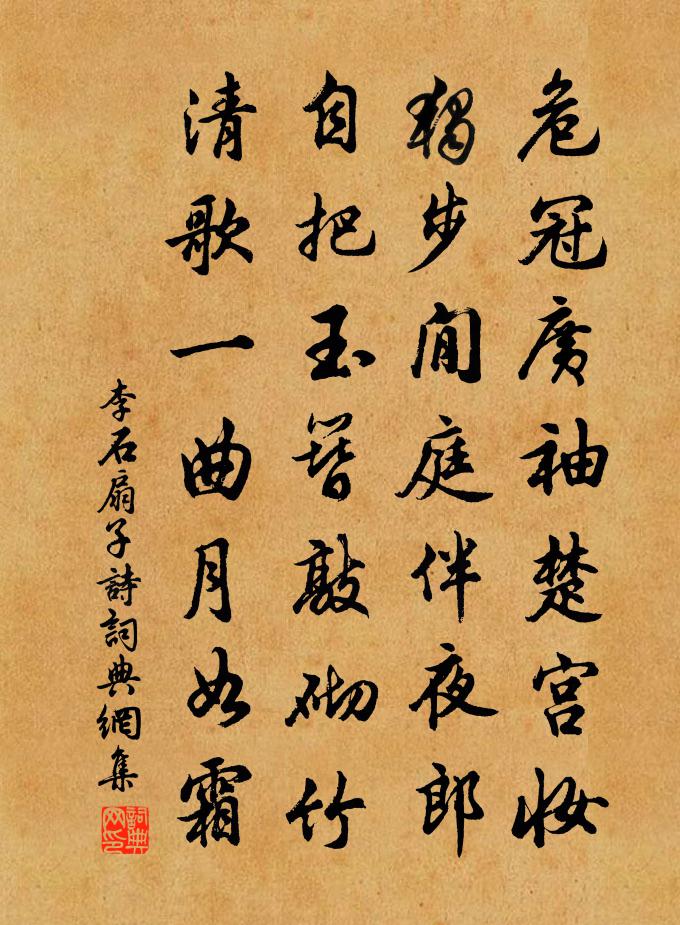 危冠廣袖楚宫妆
獨步閒庭伴夜郎
自把玉簪敲砌竹
清歌一曲月如霜
李石扇子詩詞典網集
詞典网印